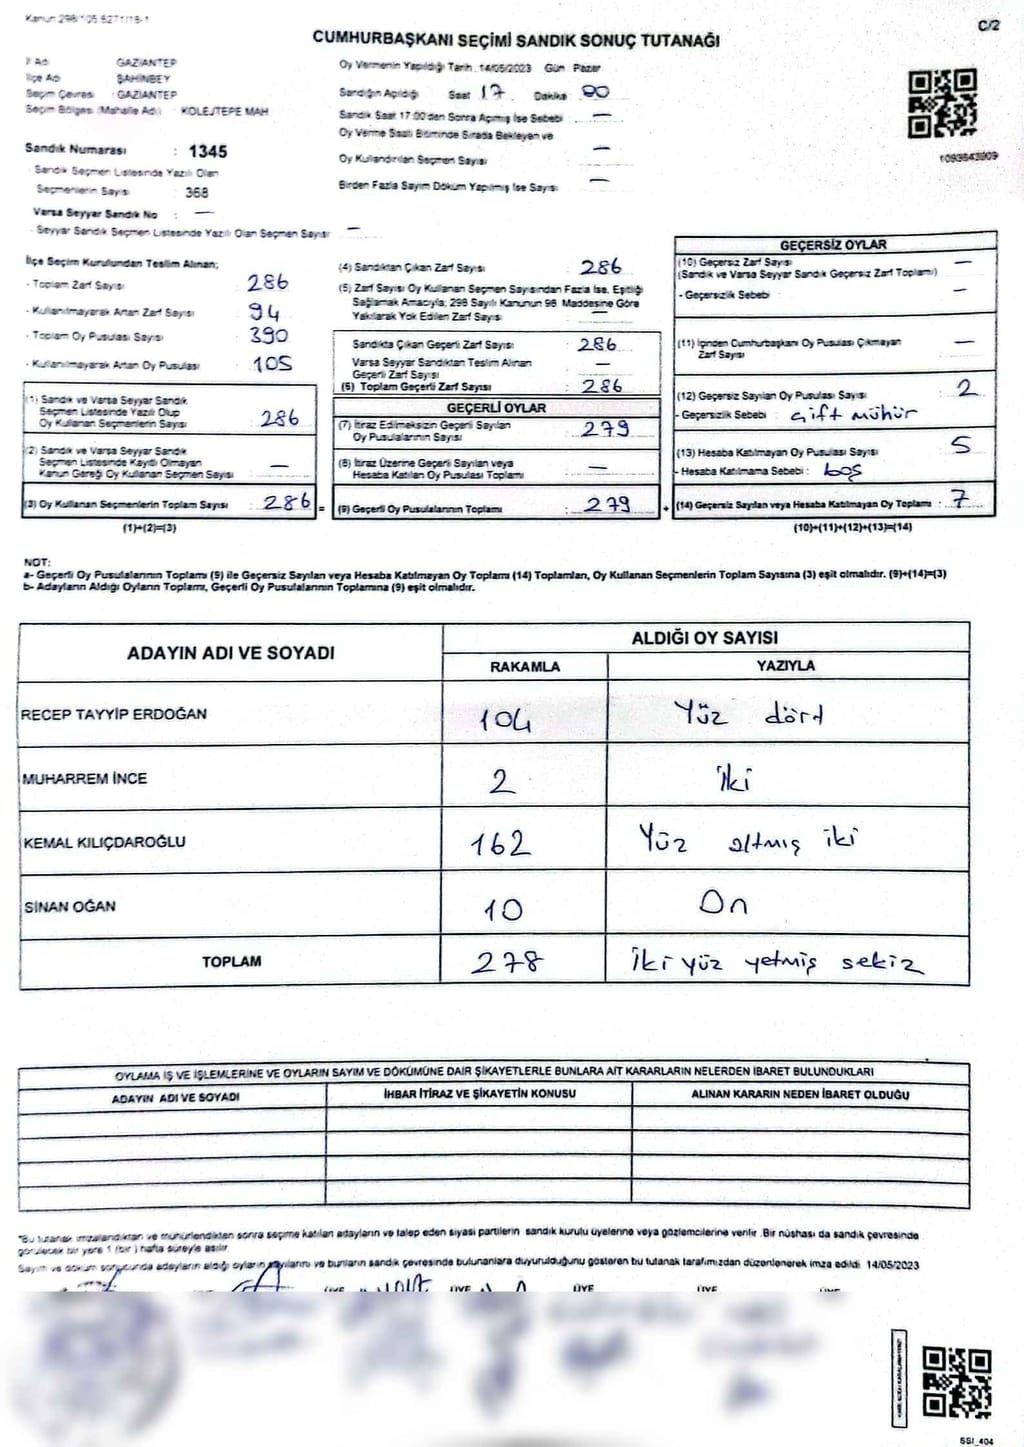 Kanun 298/105 6271/18-1
C/2
CUMHURBAŞKANI SEÇİMİ SANDIK SONUÇ TUTANAĞI
İl Adı GAZİANTEP
İlçe Adı ŞAHİNBEY
Seçim Çevresi : GAZİANTEP
Seçim Bölgesi (Mahalle Adı) : KOLEJTEPE MAH
Sandık Numarası : 1345
- Sandık Seçmen Listesinde Yazılı Olan
Seçmenlerin Sayısı : 368
Varsa Seyyar Sandık No : —
- Seyyar Sandık Seçmen Listesinde Yazılı Olan Seçmen Sayısı —
Oy Vermenin Yapıldığı Tarih : 14/05/2023 Gün : Pazar
Sandığın Açıldığı Saat 17 Dakika 00
Sandık Saat 17:00'den Sonra Açımış İse Sebebi —
Oy Verme Saati Bitiminde Sırada Bekleyen ve
Oy Kullandırılan Seçmen Sayısı —
Birden Fazla Sayım Döküm Yapılmış İse Sayısı —
1093643909
İlçe Seçim Kurulundan Teslim Alınan;
- Toplam Zarf Sayısı : 286
- Kullanılmayarak Artan Zarf Sayısı : 94
- Toplam Oy Pusulası Sayısı : 390
- Kullanılmayarak Artan Oy Pusulası : 105
(1) Sandık ve Varsa Seyyar Sandık
Seçmen Listesinde Yazılı Olup
Oy Kullanan Seçmenlerin Sayısı : 286
(2) Sandık ve Varsa Seyyar Sandık
Seçmen Listesinde Kaydı Olmayan
Kanun Gereği Oy Kullanan Seçmen Sayısı : —
(3) Oy Kullanan Seçmenlerin Toplam Sayısı : 286 =
(1)+(2)=(3)
(4) Sandıktan Çıkan Zarf Sayısı : 286
(5) Zarf Sayısı Oy Kullanan Seçmen Sayısından Fazla İse, Eşitliği
Sağlamak Amacıyla; 298 Sayılı Kanunun 98. Maddesine Göre
Yakılarak Yok Edilen Zarf Sayısı : —
Sandıkta Çıkan Geçerli Zarf Sayısı : 286
Varsa Seyyar Sandıktan Teslim Alınan
Geçerli Zarf Sayısı : —
(6) Toplam Geçerli Zarf Sayısı : 286
GEÇERLİ OYLAR
(7) İtiraz Edilmeksizin Geçerli Sayılan
Oy Pusulalarının Sayısı : 279
(8) İtiraz Üzerine Geçerli Sayılan veya
Hesaba Katılan Oy Pusulası Toplamı : —
(9) Geçerli Oy Pusulalarının Toplamı : 279 +
GEÇERSİZ OYLAR
(10) Geçersiz Zarf Sayısı : —
(Sandık ve Varsa Seyyar Sandık Geçersiz Zarf Toplamı)
- Geçersizlik Sebebi : —
(11) İçinden Cumhurbaşkanı Oy Pusulası Çıkmayan
Zarf Sayısı : —
(12) Geçersiz Sayılan Oy Pusulası Sayısı : 2
- Geçersizlik Sebebi : çift mühür
(13) Hesaba Katılmayan Oy Pusulası Sayısı : 5
- Hesaba Katılmama Sebebi : boş
(14) Geçersiz Sayılan veya Hesaba Katılmayan Oy Toplamı : 7
(10)+(11)+(12)+(13)=(14)
NOT:
a- Geçerli Oy Pusulalarının Toplamı (9) ile Geçersiz Sayılan veya Hesaba Katılmayan Oy Toplamı (14) Toplamları, Oy Kullanan Seçmenlerin Toplam Sayısına (3) eşit olmalıdır. (9)+(14)=(3)
b- Adayların Aldığı Oyların Toplamı, Geçerli Oy Pusulalarının Toplamına (9) eşit olmalıdır.
ADAYIN ADI VE SOYADI ALDIĞI OY SAYISI
RAKAMLA YAZIYLA
RECEP TAYYİP ERDOĞAN 104 Yüz dört
MUHARREM İNCE 2 İki
KEMAL KILIÇDAROĞLU 162 Yüz altmış iki
SİNAN OĞAN 10 On
TOPLAM 278 İki yüz yetmiş sekiz
OYLAMA İŞ VE İŞLEMLERİNE VE OYLARIN SAYIM VE DÖKÜMÜNE DAİR ŞİKAYETLERLE BUNLARA AİT KARARLARIN NELERDEN İBARET BULUNDUKLARI
ADAYIN ADI VE SOYADI İHBAR İTİRAZ VE ŞİKAYETİN KONUSU ALINAN KARARIN NEDEN İBARET OLDUĞU
*Bu tutanak imzalandıktan ve mühürlendikten sonra seçime katılan adayların ve talep eden siyasi partilerin sandık kurulu üyelerine veya gözlemcilerine verilir. Bir nüshası da sandık çevresinde
görülecek bir yere 1 (bir) hafta süreyle asılır.
Sayım ve döküm sonucunda adayların aldığı oyların sayılarını ve bunların sandık çevresinde bulunanlara duyurulduğunu gösteren bu tutanak tarafımızdan düzenlenerek imza edildi. 14/05/2023
ÜYE ÜYE ÜYE ÜYE ÜYE
SSI_404